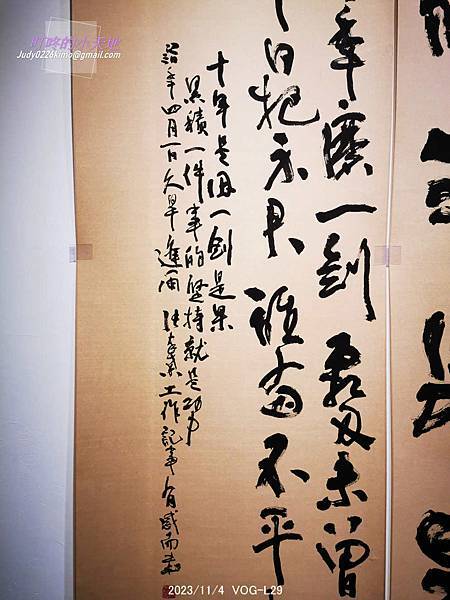 叮咚的小天地
Judy0226kimo@gmail.com
年磨一劍霜刃未曾
日把示君誰為不平
十年是因一劍是果
累積一件事的堅持就是功力
年四月一日久旱逢雨 工作記事有感而書
2023/11/4 VOG-L29